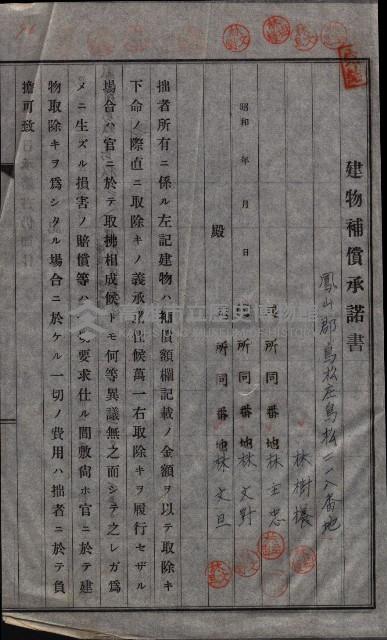 建物補償承諾書
鳳山郡鳥松庄鳥松二一八番地
林樹欉
同所同番地林主忠
同所同番地林文對
同所同番地林文旦
昭和 年 月 日
殿
拙者所有ニ係ル左記建物ハ補償額欄記載ノ金額ヲ以テ取除キ
下命ノ際直ニ取除キノ義承諾仕候萬一右取除キヲ履行セザル
場合ハ官ニ於テ取拂相成候トモ何等異議無之而シテ之レガ爲
メニ生ズル損害ノ賠償等ハ一切要求仕ル間敷尙ホ官ニ於テ建
物取除キヲ爲シタル場合ニ於ケル一切ノ費用ハ拙者ニ於テ負
擔可致